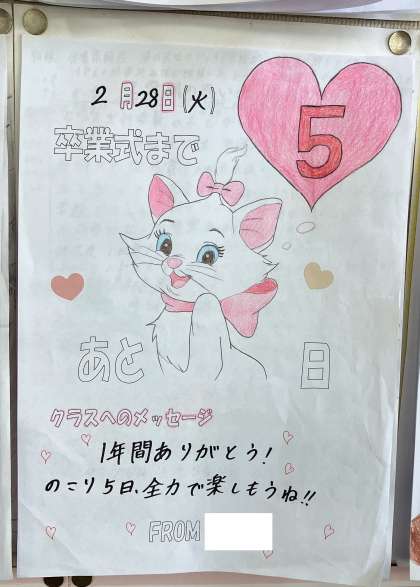 2月28日(火)
卒業式まで
5
あと 日
クラスへのメッセージ
1年間ありがとう!
のこり5日、全力で楽しもうね!!
FROM